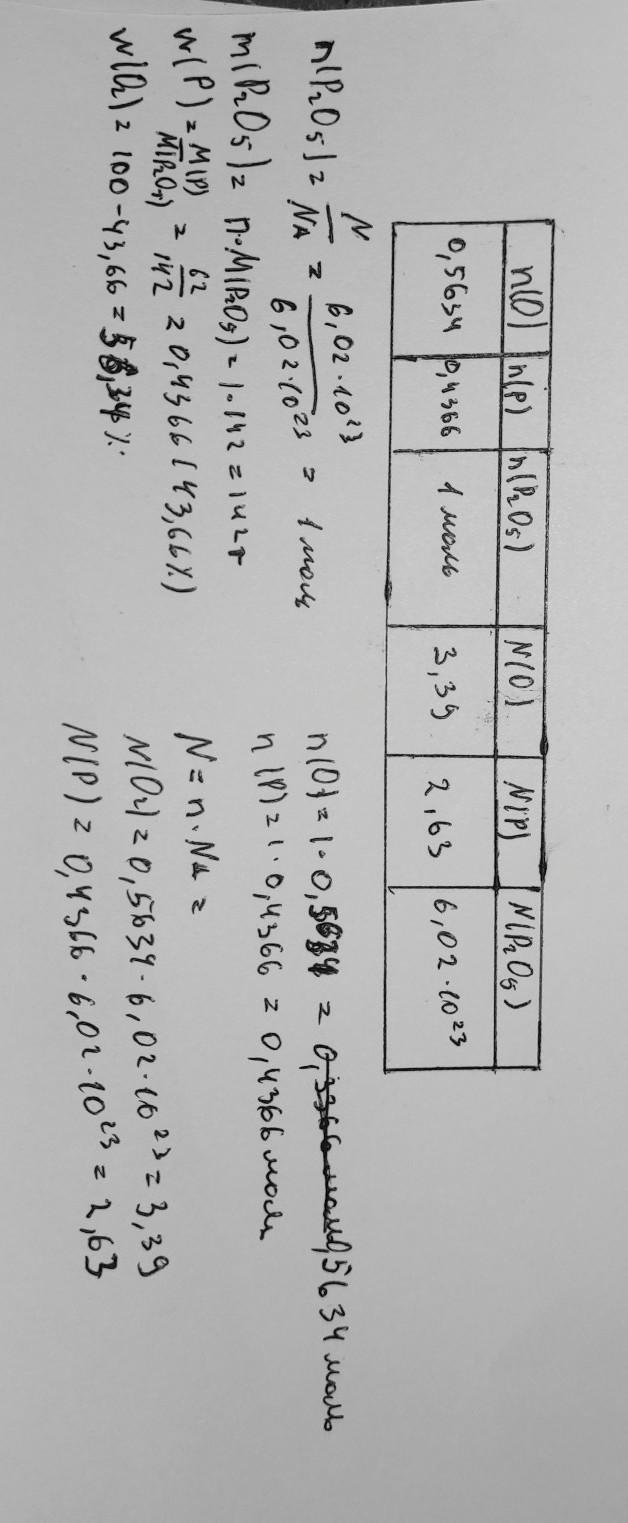 n(O) n(P) n(P₂O₅) N(O) N(P) N(P₂O₅)
0,5634 0,4366 1 моль 3,39 2,63 6,02·10²³
n(P₂O₅) = N/NA = 6,02·10²³/6,02·10²³ = 1 моль
m(P₂O₅) = n·M(P₂O₅) = 1·142 = 142г
w(P) = M(P)/M(P₂O₅) = 62/142 = 0,4366 (43,66%)
w(O₂) = 100-43,66 = 56,34%
n(O) = 1·0,5634 = 0,5634 моль
n(P) = 1·0,4366 = 0,4366 моль
N = n·NA =
N(O₂) = 0,5634·6,02·10²³ = 3,39
N(P) = 0,4366·6,02·10²³ = 2,63